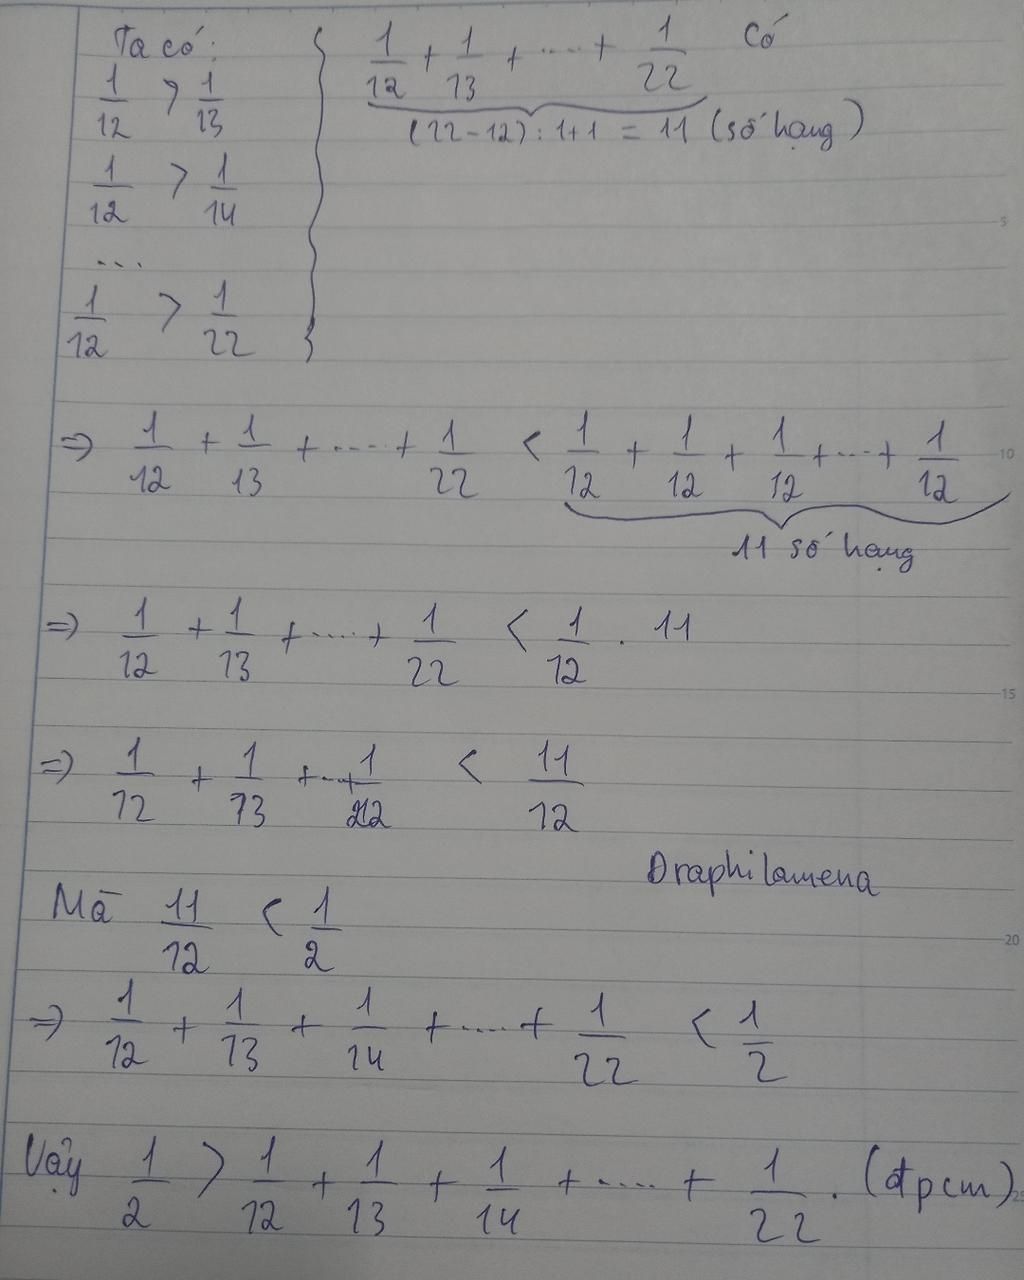 Ta có:
1/12 > 1/13
1/12 > 1/14
...
1/12 > 1/22
1/12 + 1/13 + .... + 1/22 có
(22-12) : 1+1 = 11 (số hạng)
=> 1/12 + 1/13 + .... + 1/22 < 1/12 + 1/12 + 1/12 + ... + 1/12
11 số hạng
=> 1/12 + 1/13 + .... + 1/22 < 1/12 . 11
=> 1/12 + 1/13 + ... + 1/22 < 11/12
Draphilamena
Mà 11/12 < 1/2
=> 1/12 + 1/13 + 1/14 + .... + 1/22 < 1/2
Vậy 1/2 > 1/12 + 1/13 + 1/14 + .... + 1/22 . (đpcm)
5
10
15
20
25